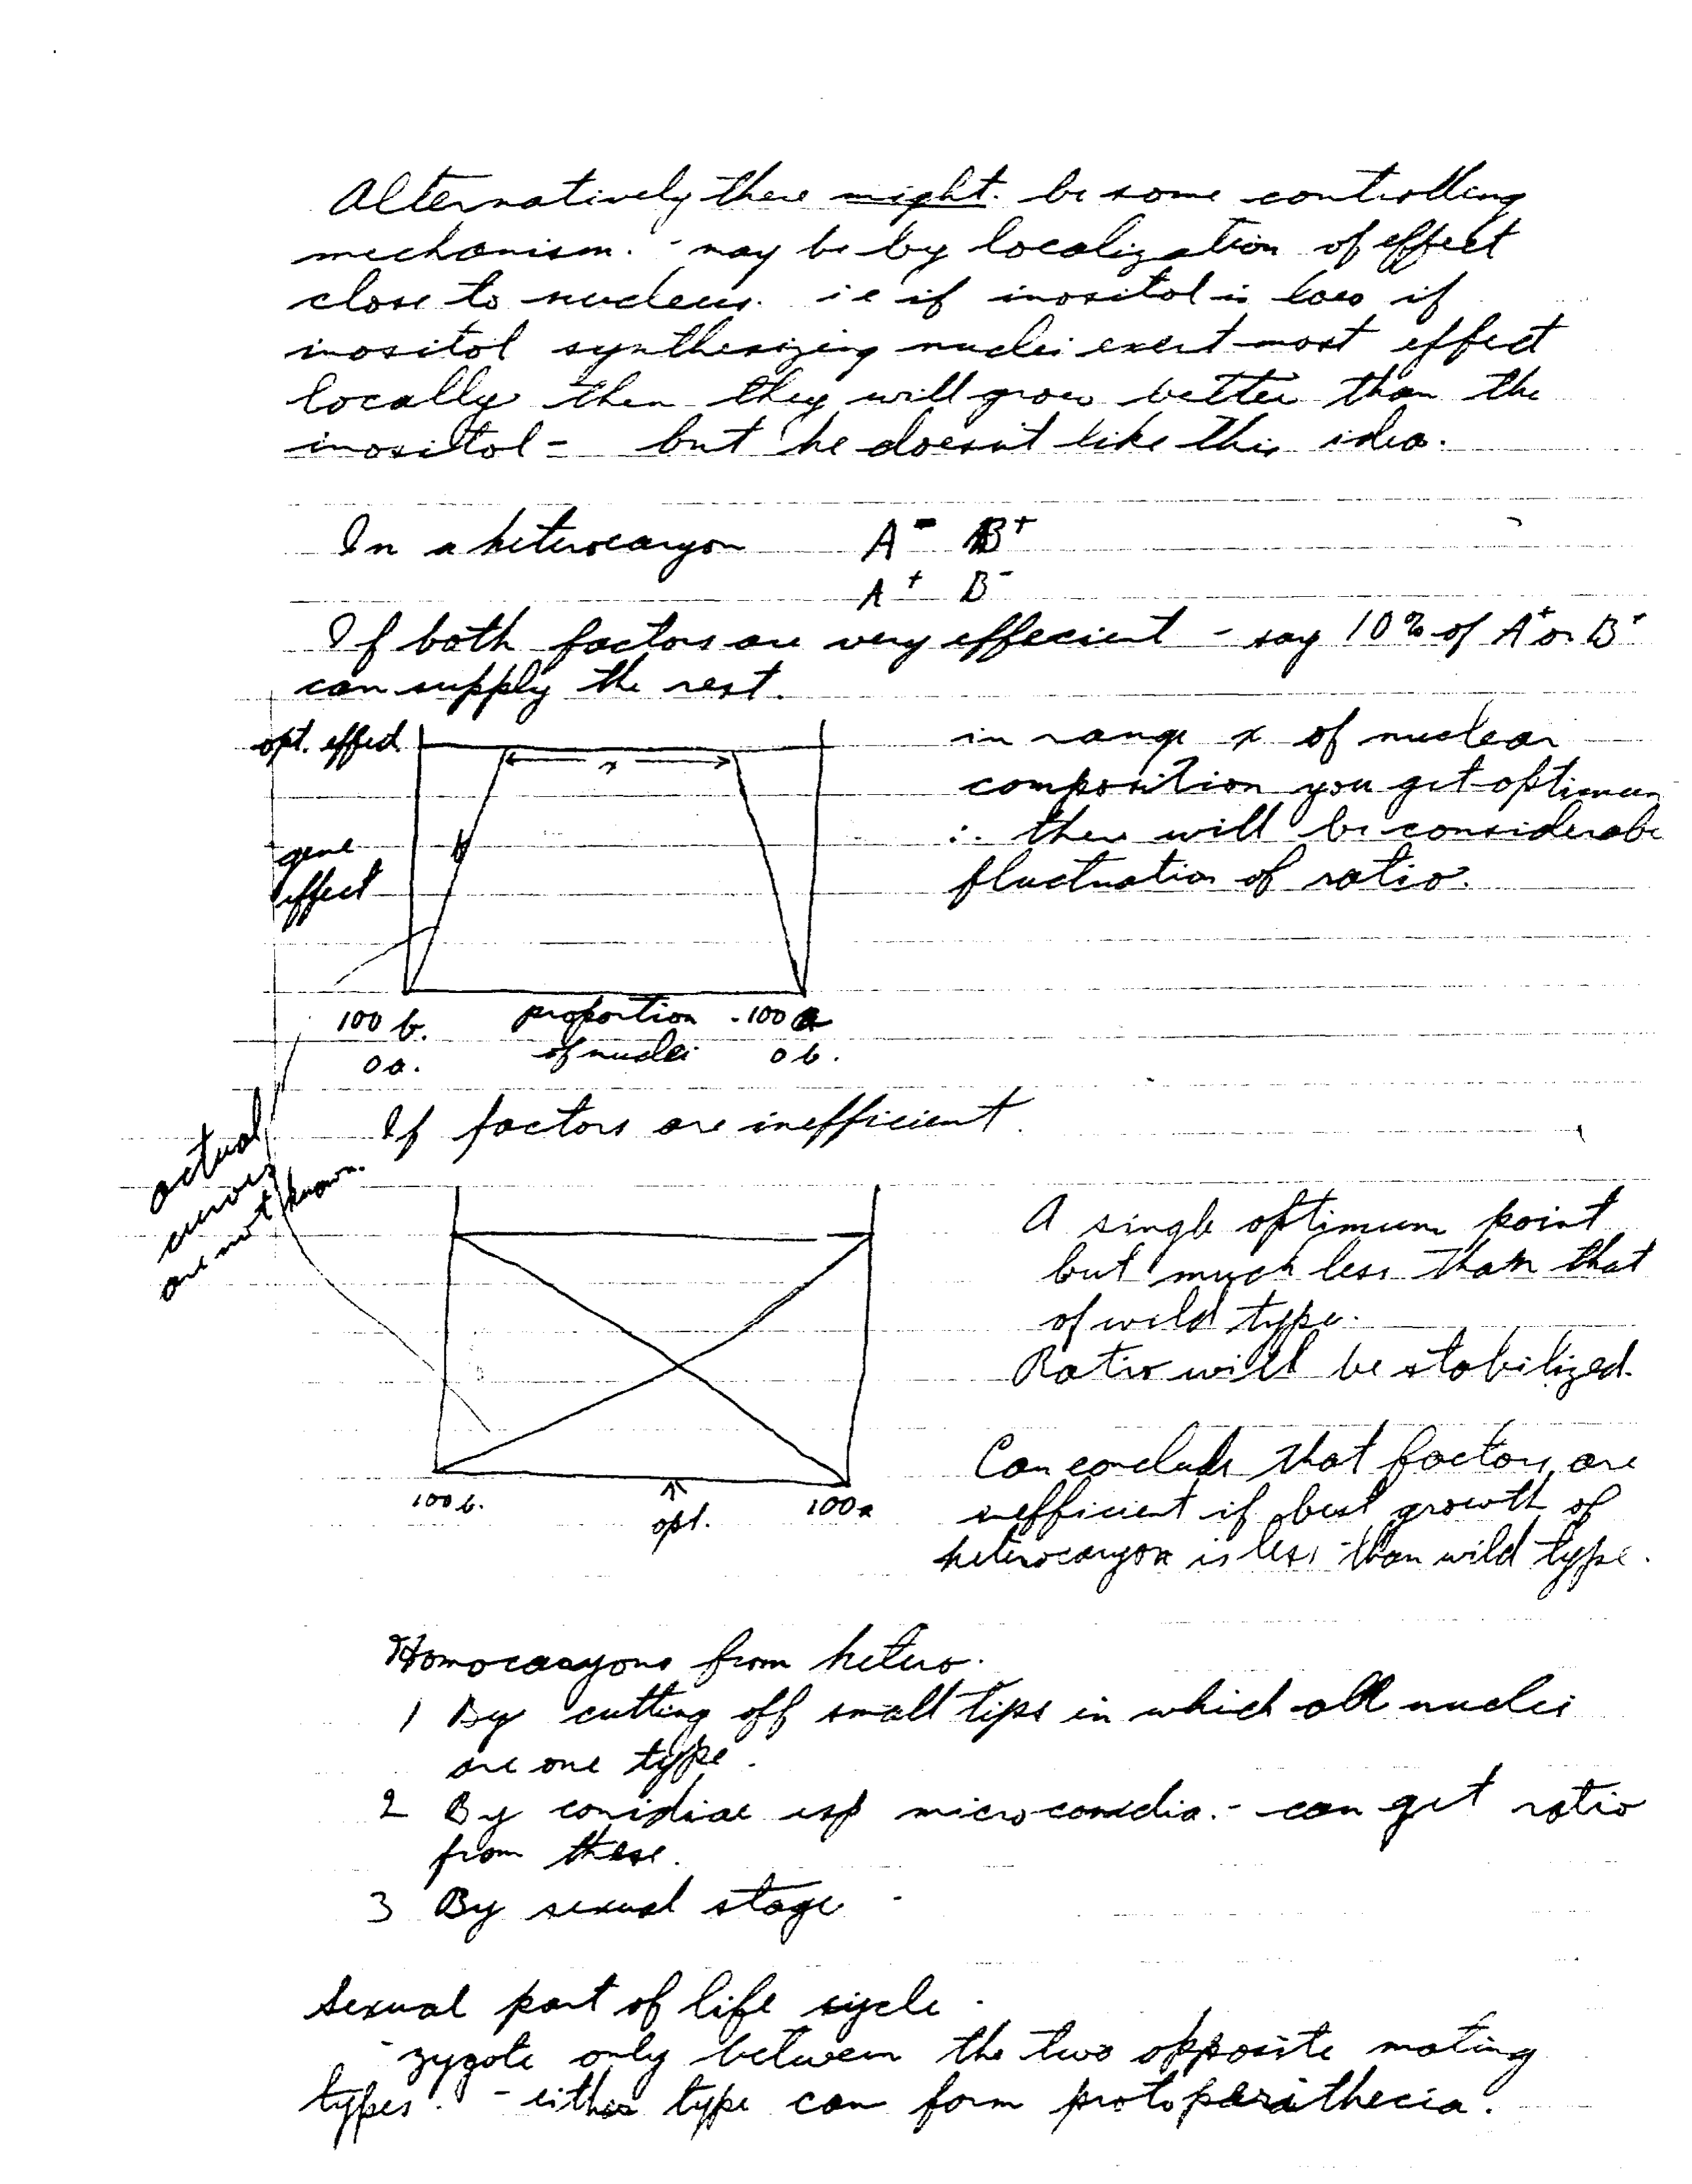 Alternatively there might be some controlling
mechanism. - may be by localization of effect
close to nucleus. ie if inositol is low if
inositol synthesizing nuclei exert most effect
locally then they will grow better than the
inositol - but he doesn't like this idea.
In a heterocaryon A⁻ B⁺
A⁺ B⁻
If both factors are very effecient - say 10% of A⁺ or B⁺
can supply the rest.
opt. effect
x
gene
effect
in range x of nuclear
composition you get optimum
∴ there will be considerabl
fluctuation of ratio.
100 b. proportion 100 a
0 a. of nuclei 0 b.
actual
curves
are not known.
If factors are inefficient.
A single optimum point
but much less than that
of wild type.
Ratio will be stabilized.
100 b. opt. 100 a
Can conclude that factors are
inefficient if best growth of
heterocaryon is less than wild type.
Homocaryons from hetero.
1 By cutting off small tips in which all nuclei
are one type.
2 By conidiae esp microconidia. - can get ratio
from these.
3 By sexual stage
Sexual part of life cycle.
- zygote only between the two opposite mating
types. - either type can form protoperithecia.